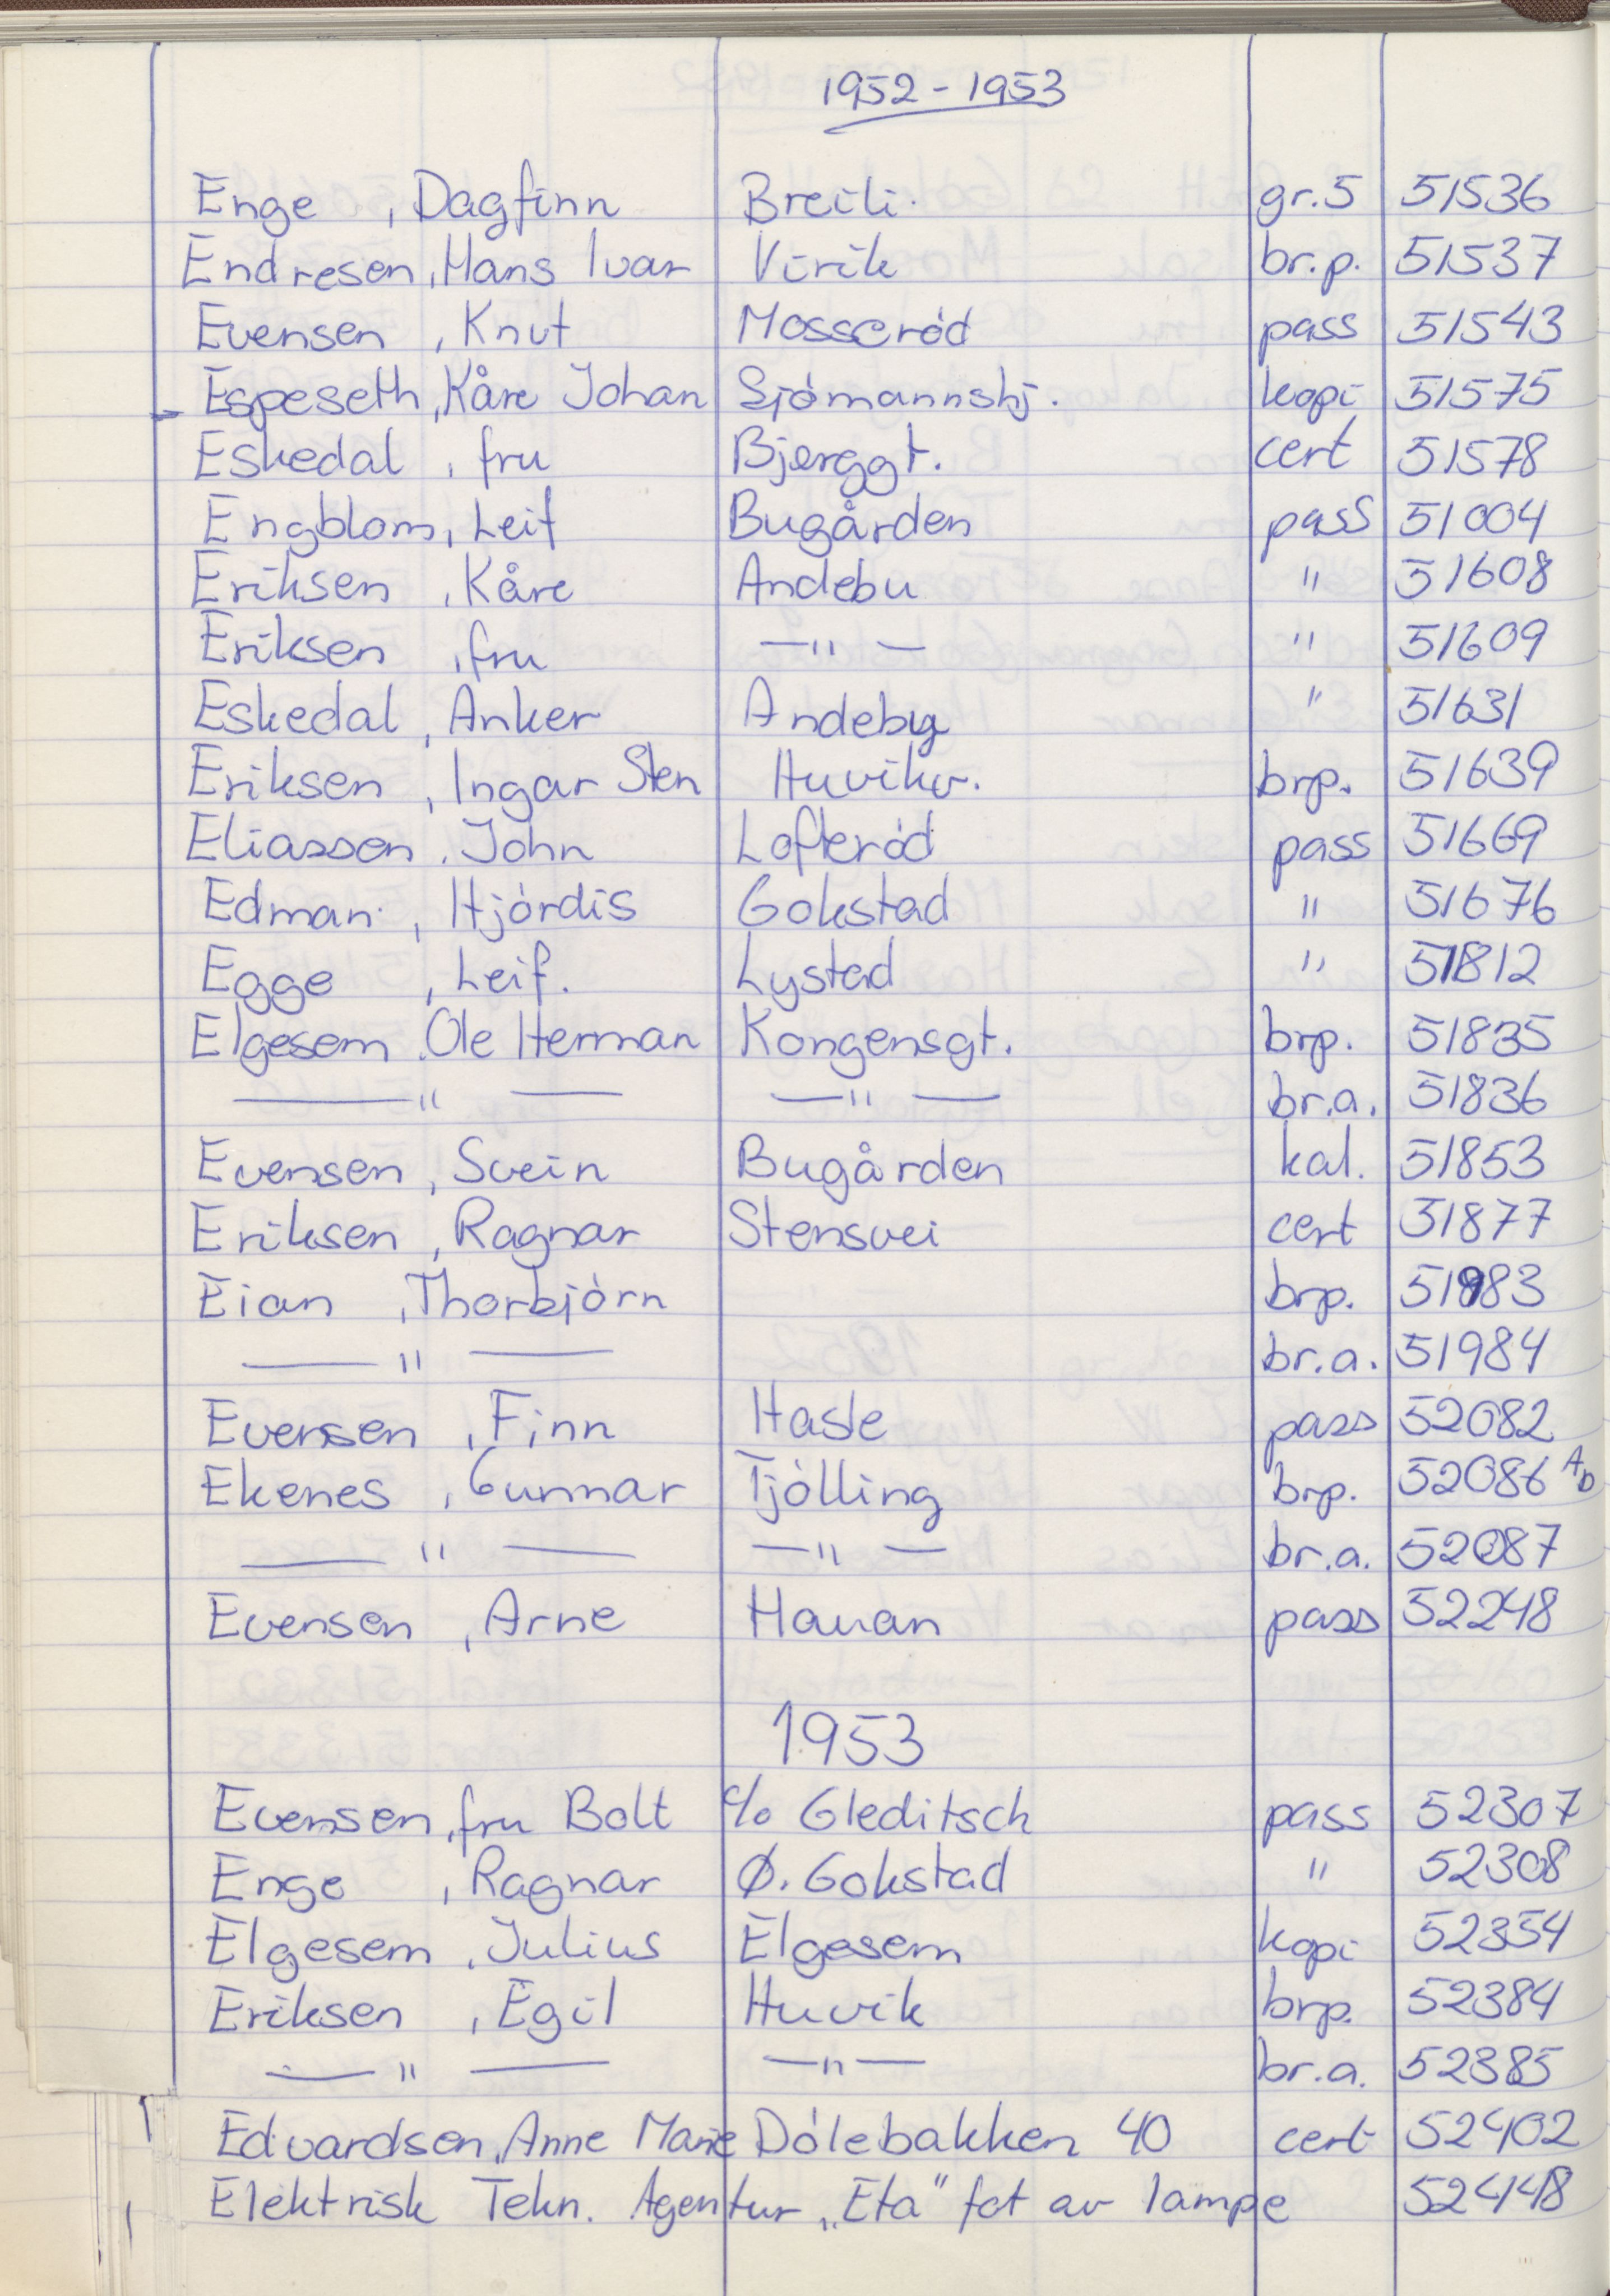 1952 - 1953
Enge , Dagfinn Breili. gr.5 51536
Endresen, Hans Ivar Virik br.p. 51537
Evensen , Knut Mosseród pass 51543
Espeseth, Kåre Johan Sjómannshj. kopi 51575
Eskedal , fru Bjerggt. cert 51578
Engblom, Leif Bugården pass 51004
Eriksen , Kåre Andebu " 51608
Eriksen , fru —"— " 51609
Eskedal , Anker Andeby " 51631
Eriksen , Ingar Sten Huvikv. brp. 51639
Eliassen , John Lofteród pass 51669
Edman , Hjórdis Gokstad " 51676
Egge , Leif. Lystad " 51812
Elgesem , Ole Herman Kongensgt. brp. 51835
—"— —"— br.a. 51836
Evensen , Svein Bugården kal. 51853
Eriksen , Ragnar Stensvei cert 51877
Eian , Thorbjórn brp. 51983
—"— br.a. 51984
Evensen , Finn Hasle pass 52082
Ekenes , Gunnar Tjólling brp. 52086 A b
—"— —"— br.a. 52087
Evensen , Arne Hauan pass 52248
1953
Evensen, fru Bolt c/o Gleditsch pass 52307
Enge , Ragnar Ø. Gokstad " 52308
Elgesem , Julius Elgesem kopi 52354
Eriksen , Egil Huvik brp. 52384
—"— —"— br.a. 52385
Edvardsen, Anne Marie Dólebakken 40 cert 52402
Elektrisk Tekn. Agentur „Eta" fot av lampe 52448